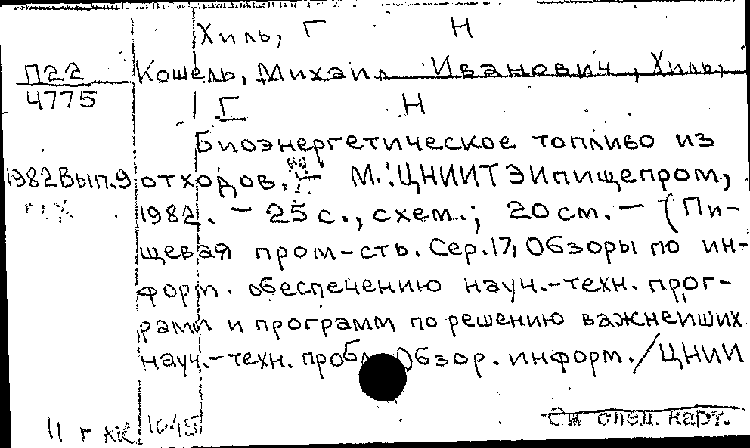 Хиль, Г Н
П22 Кошель, Михаил Иванович, Хиль,
4775 Г Н
Биоэнергетическое топливо из
1982 Вып.9 отходов. – М.: ЦНИИТЭИпищепром,
1982. – 25 с., схем.; 20 см. – (Пи-
щевая пром-сть. Сер. 17, Обзоры по ин-
форм. обеспечению науч.-техн. прог-
рамм и программ по решению важнейших
науч.-техн. пробл. Обзор. информ. / ЦНИИ
См след. карт.